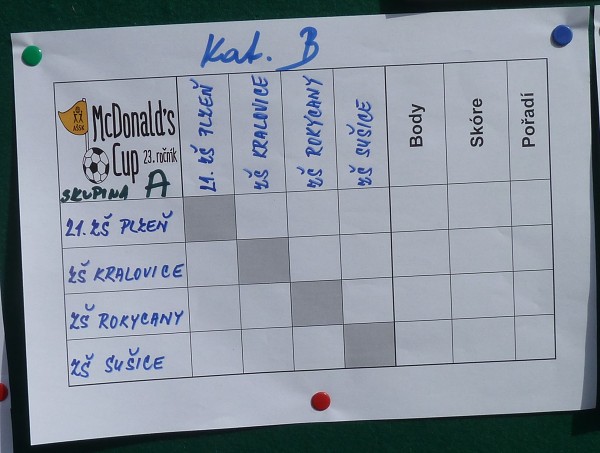 Kat. B
AŠSK
McDonald's
Cup 23. ročník
SKUPINA A
21. ZŠ PLZEŇ
ZŠ KRALOVICE
ZŠ ROKYCANY
ZŠ SUŠICE
Body
Skóre
Pořadí
21. ZŠ PLZEŇ
ZŠ KRALOVICE
ZŠ ROKYCANY
ZŠ SUŠICE